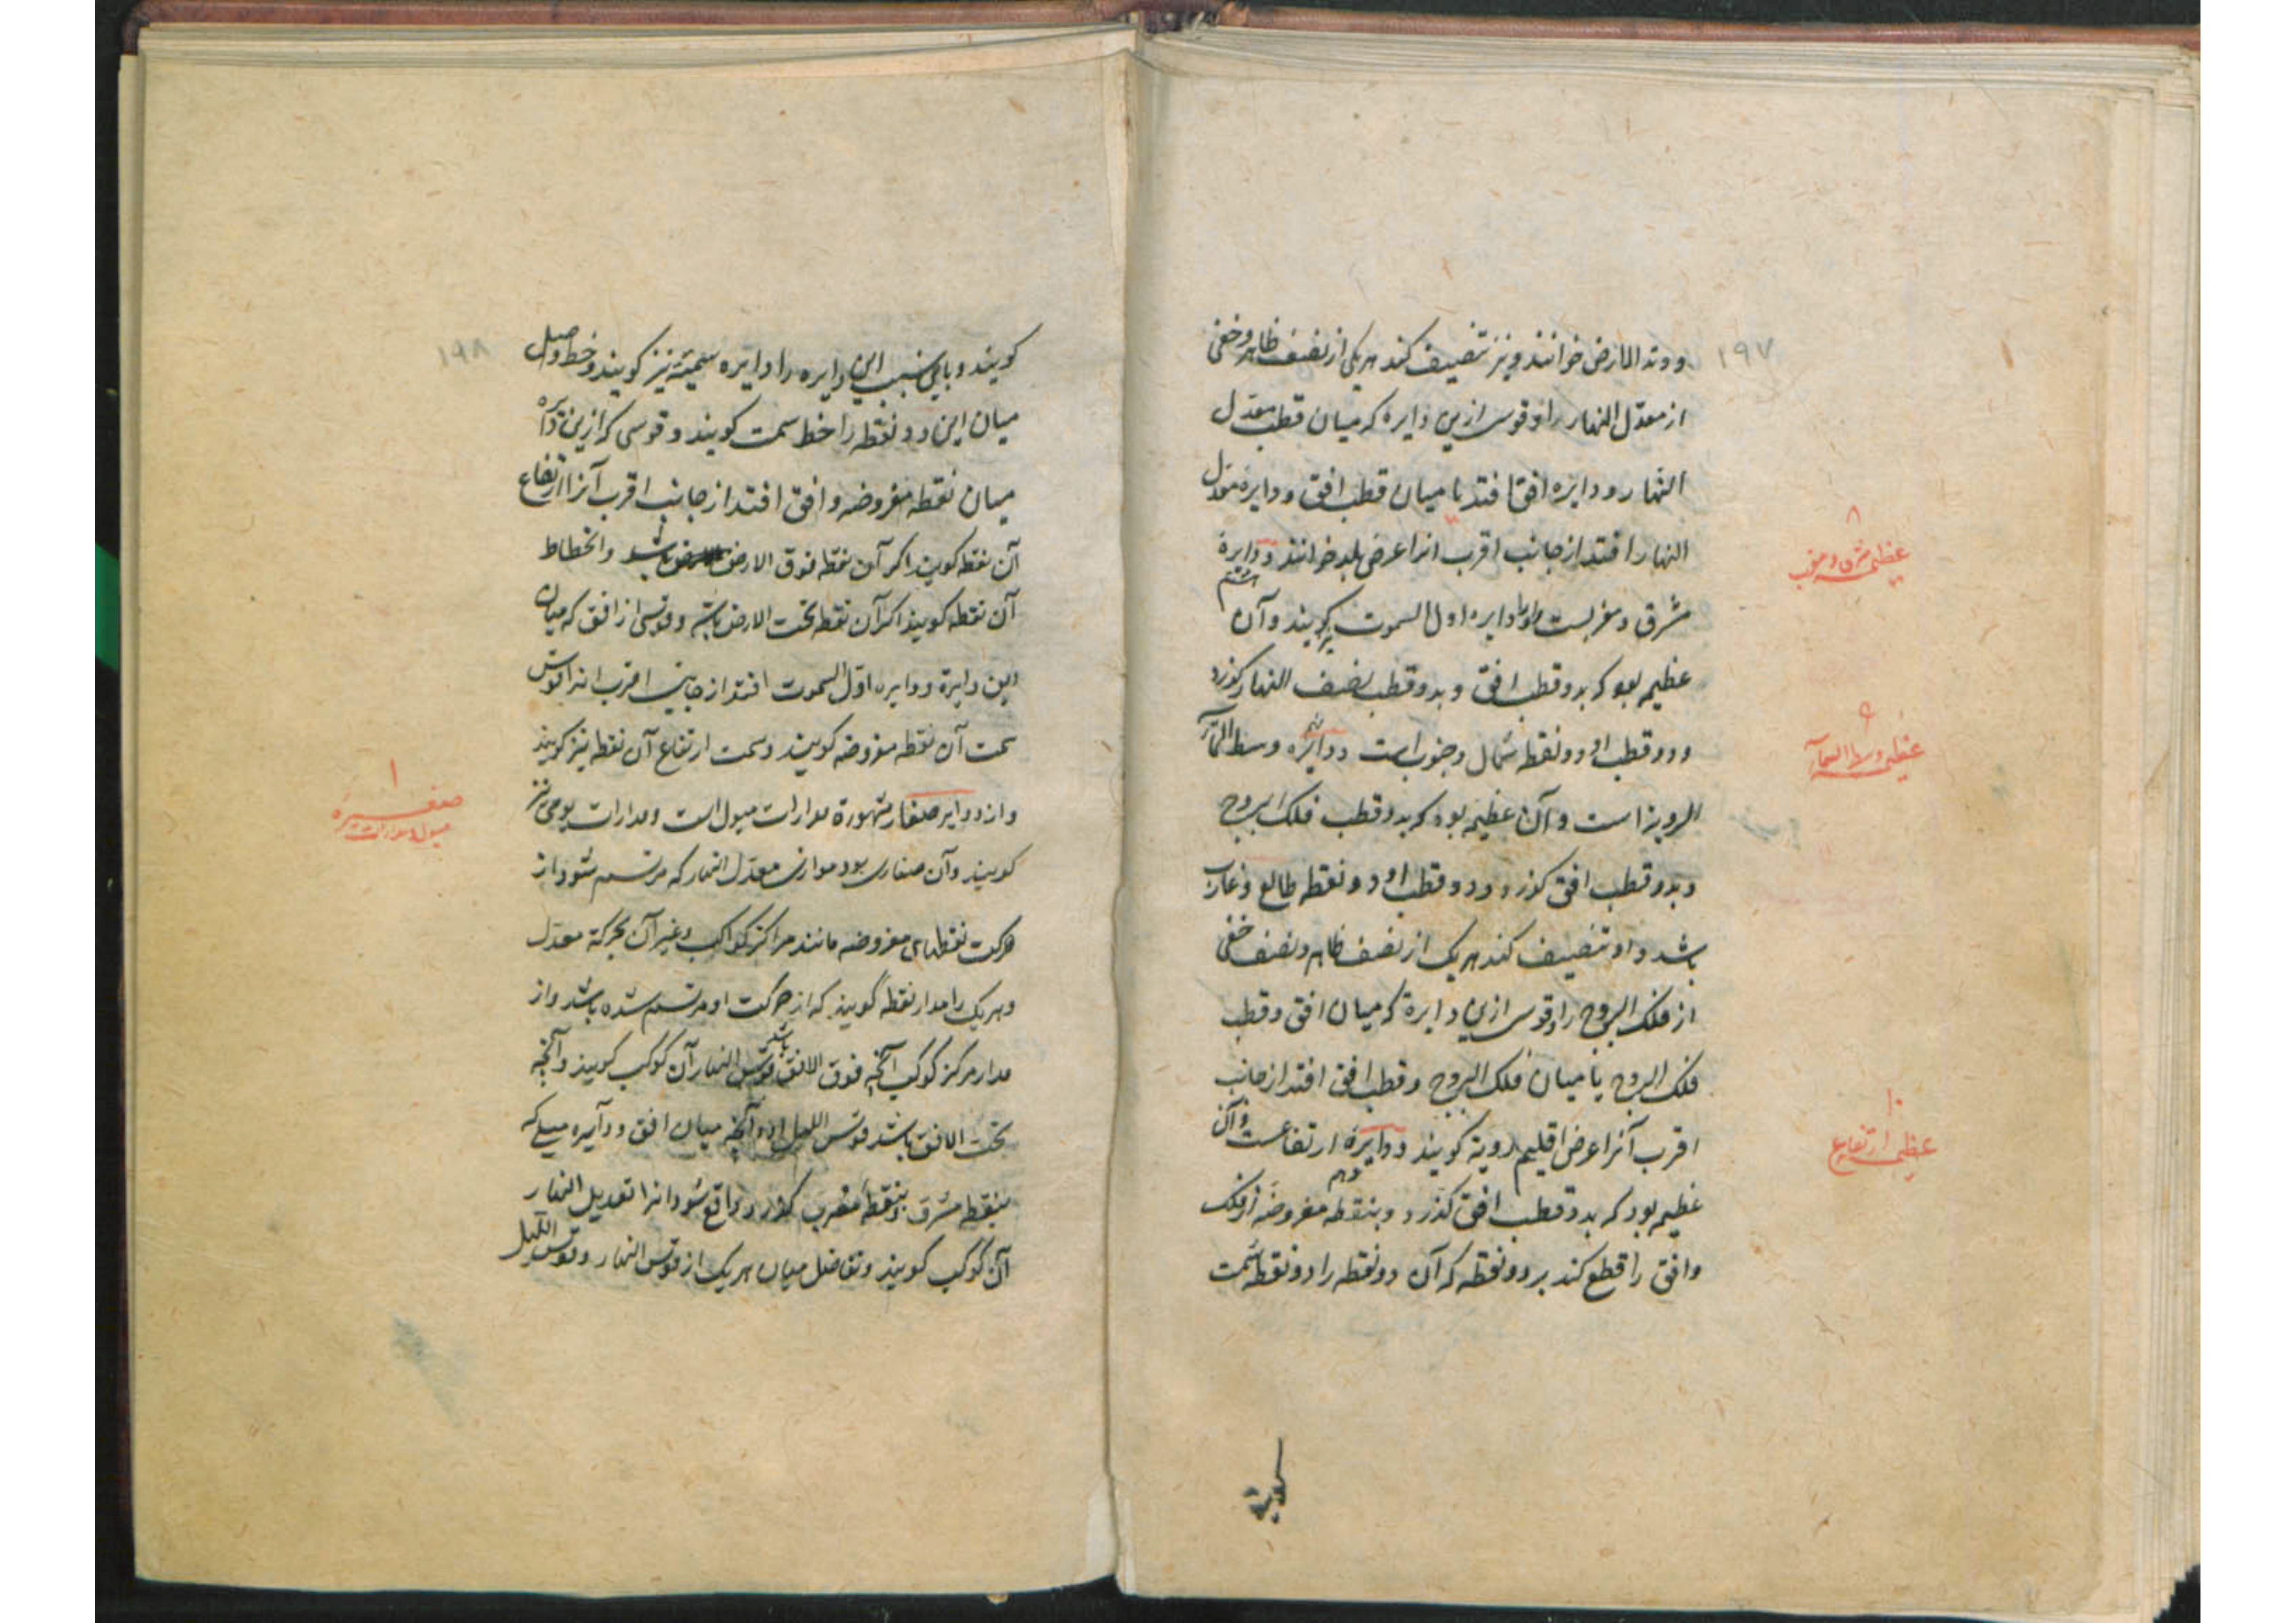 ۱۹۷
و وتد الارض خوانند و نیز تنصیف کند هر یکی از نصف ظاهر و خفی
از معدّل النهار را و قوسی ازین دایره که میان قطب معدّل
النهار و دایره افق افتد یا میان قطب افق و دایره معدّل
النهار را افتد از جانب اقرب انرا عرض بلد خوانند و دایرهٔ
هشتم
مشرق و مغربست و او را دایره اول السموت گویند و آن
عظیمه بود که بدو قطب افق و بدو قطب نصف النهار گذرد
و دو قطب او دو نقطه شمال و جنوب است و دایره وسط السمآء
نهم
الرویة است و آن عظیمه بود که بدو قطب فلک البروج
و بدو قطب افق گذرد و دو قطب او دو نقطه طالع و غارب
باشد و او تنصیف کند هر یک از نصف ظاهر و نصف خفی
از فلک البروج را و قوسی ازین دایرة که میان افق و قطب
فلک البروج یا میان فلک البروج و قطب افق افتد از جانب
اقرب آنرا عرض اقلیم رویة گویند و دایرهٔ ارتفاعست و آن
دهم
عظیمه بود که بدو قطب افق گذرد و بنقطه مفروضه از فلک
و افق را قطع کند بر دو نقطه که آن دو نقطه را دو نقطه سمت
گویند
۸
عظیمه مشرق و مغرب
۹
عظیمه وسط السمآء
۱۰
عظیمه ارتفاع
۱۹۸
گویند و باین سبب این دایره را دایره سمتیّه نیز گویند و خط واصل
میان این دو نقطه را خط سمت گویند و قوسی که ازین دایره
میان نقطه مفروضه و افق افتد از جانب اقرب آنرا ارتفاع
آن نقطه گویند اگر آن نقطه فوق الارض باشد و انحطاط
آن نقطه گویند اگر آن نقطه تحت الارض باشد و قوسی از افق که میان
این دایرة و دایره اوّل السموت افتد از جانب اقرب انرا قوس
سمت آن نقطه مفروضه گویند و سمت ارتفاع آن نقطه نیز گویند
و از دوایر صغار مشهورة مدارات میول است و مدارات یومی نیز
گویند و آن صغاری بود موازی معدّل النهار که مرتسم شود از
حرکت نقطهای مفروضه مانند مراکز کواکب و غیر آن بحرکة معدّل
و هر یک را مدار نقطه گویند که از حرکت او مرتسم شده باشد و از
مدار مرکز کوکب آنچه فوق الافق باشد قوس النهار آن کوکب گویند و آنچه
تحت الافق باشد قوس اللیل او و آنچه میان افق و دایره میلی که
بنقطه مشرق و بنقطه مغرب گذرد واقع شود انرا تعدیل النهار
آن کوکب گویند و تفاضل میان هر یک از قوس النهار و قوس اللیل
۱
صغیره
میول و مدارات